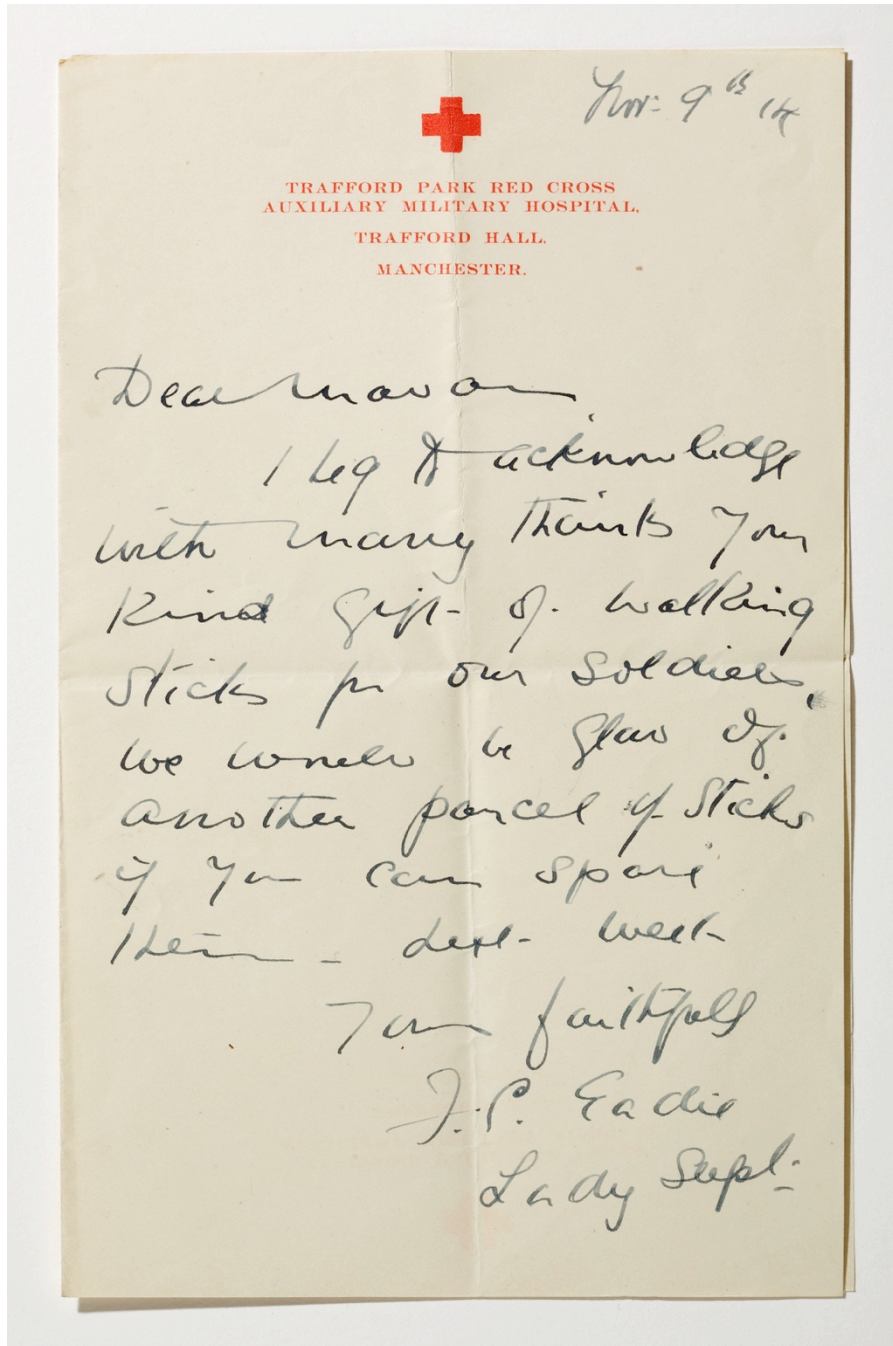 Nov: 9th 14
TRAFFORD PARK RED CROSS
AUXILIARY MILITARY HOSPITAL,
TRAFFORD HALL,
MANCHESTER.
Dear Madam
I beg to acknowledge
with many thanks your
kind gift of walking
sticks for our soldiers,
we would be glad of
another parcel of sticks
if you can spare
them - next week
Yours faithfully
F. P. Eadie
Lady Supt: